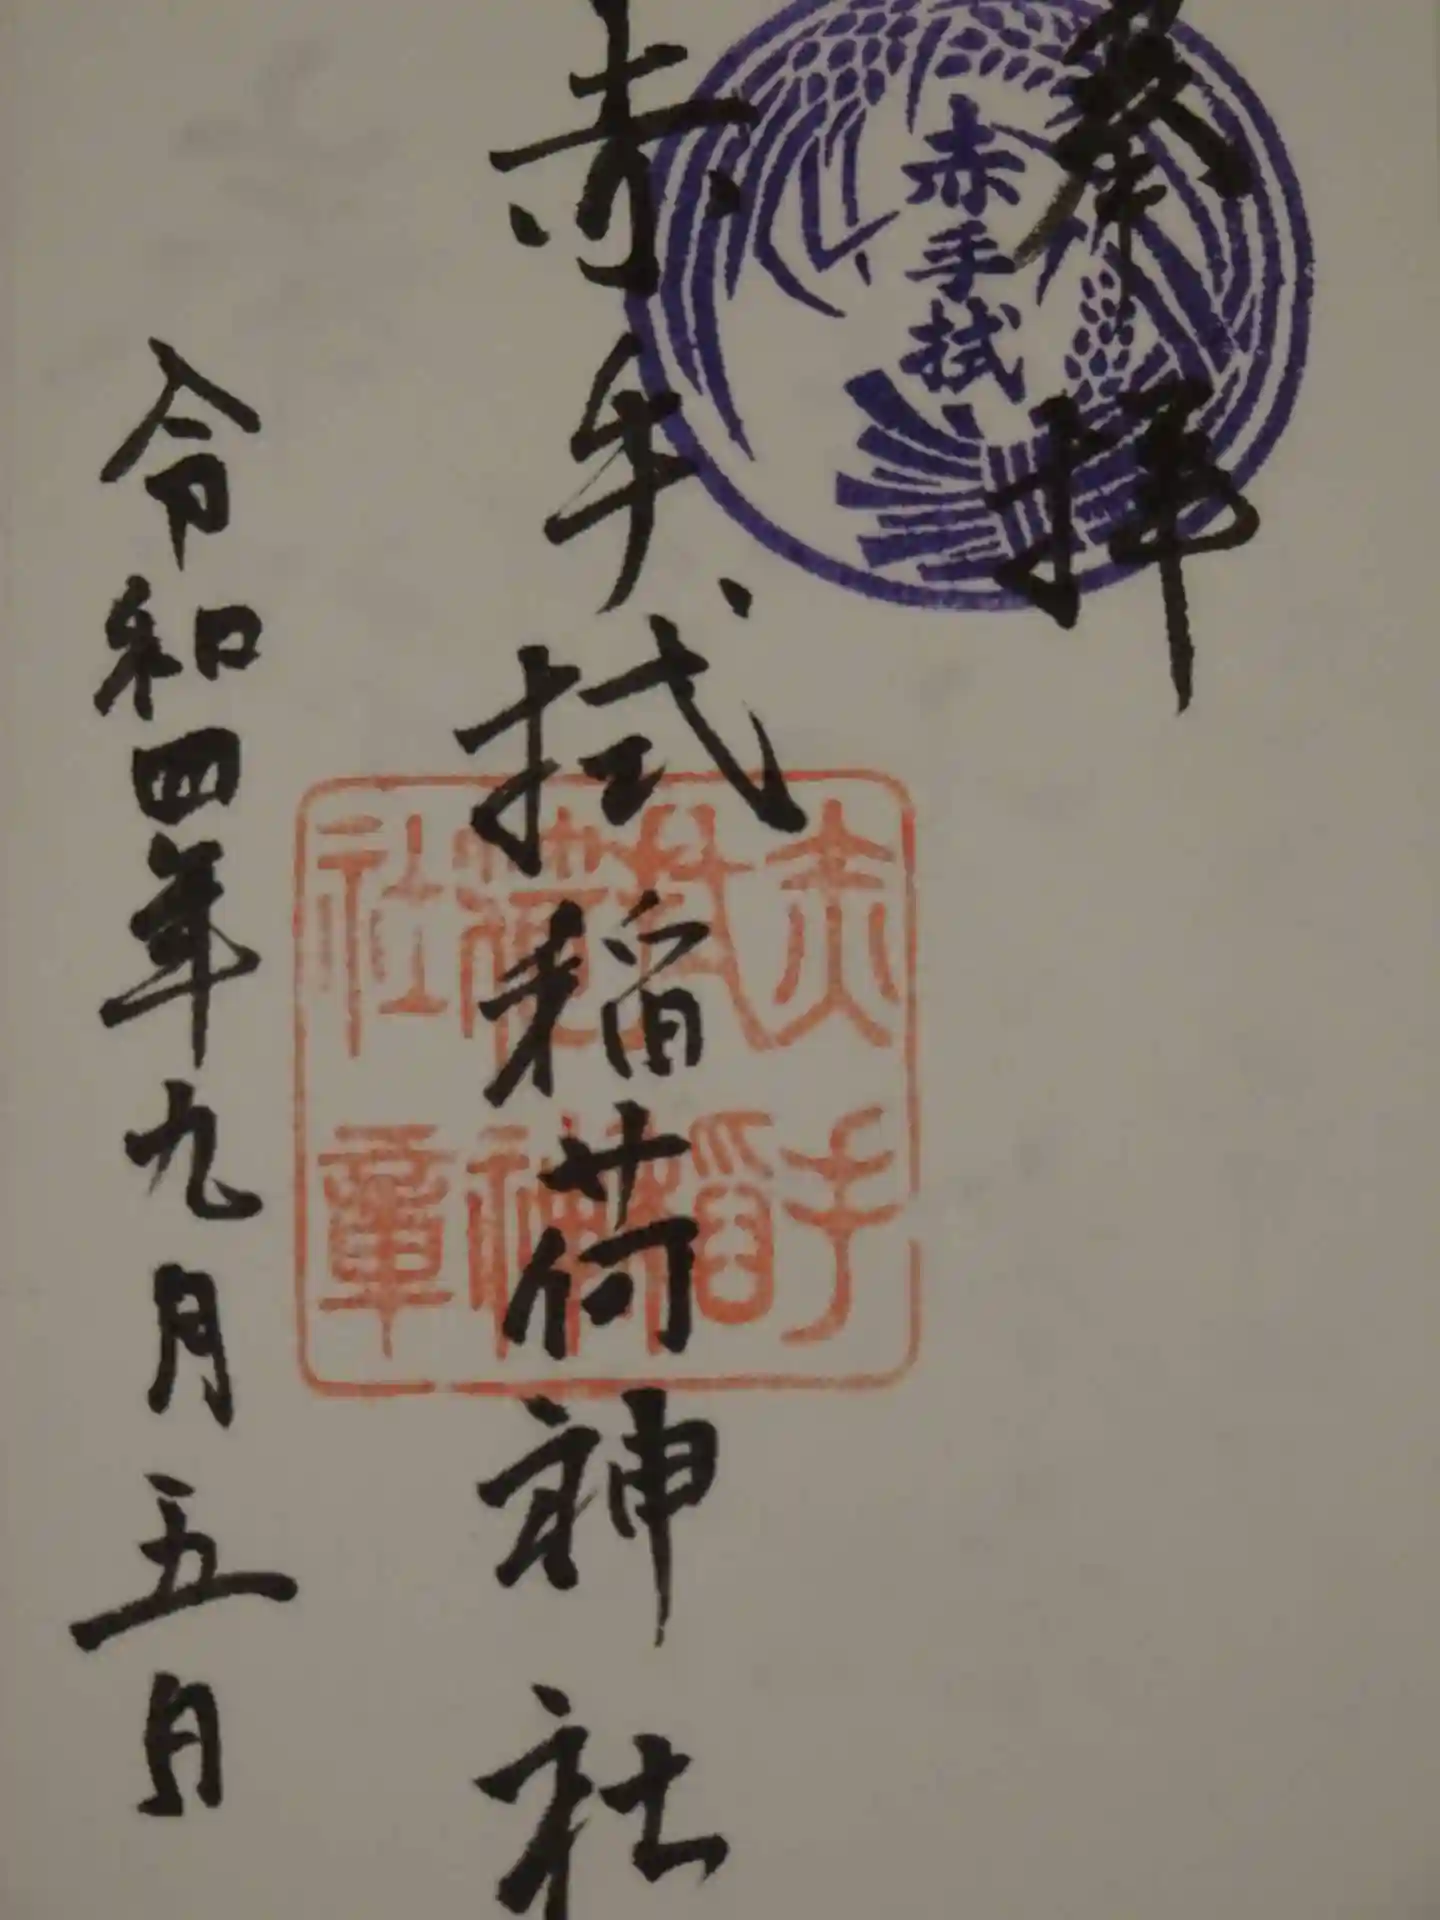 奉拝
赤手拭
赤手拭稲荷神社
赤手
拭稲
荷神
社章
令和四年九月五日